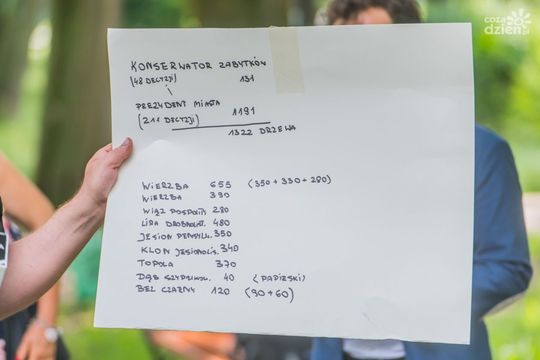 coza
dzien
KONSERWATOR ZABYTKÓW
(48 DECYZJI) 131
PREZYDENT MIASTA
(211 DECYZJI) 1191
1322 DRZEWA
WIERZBA 655 (350+330+280)
WIERZBA 390
WIĄZ POSPOLITY 280
LIPA DROBNOLIST. 480
JESION PENSYLW. 350
KLON JESIONOLIS. 340
TOPOLA 370
DĄB SZYPUŁKOW. 40 (PAPIESKI)
BEZ CZARNY 120 (90+60)